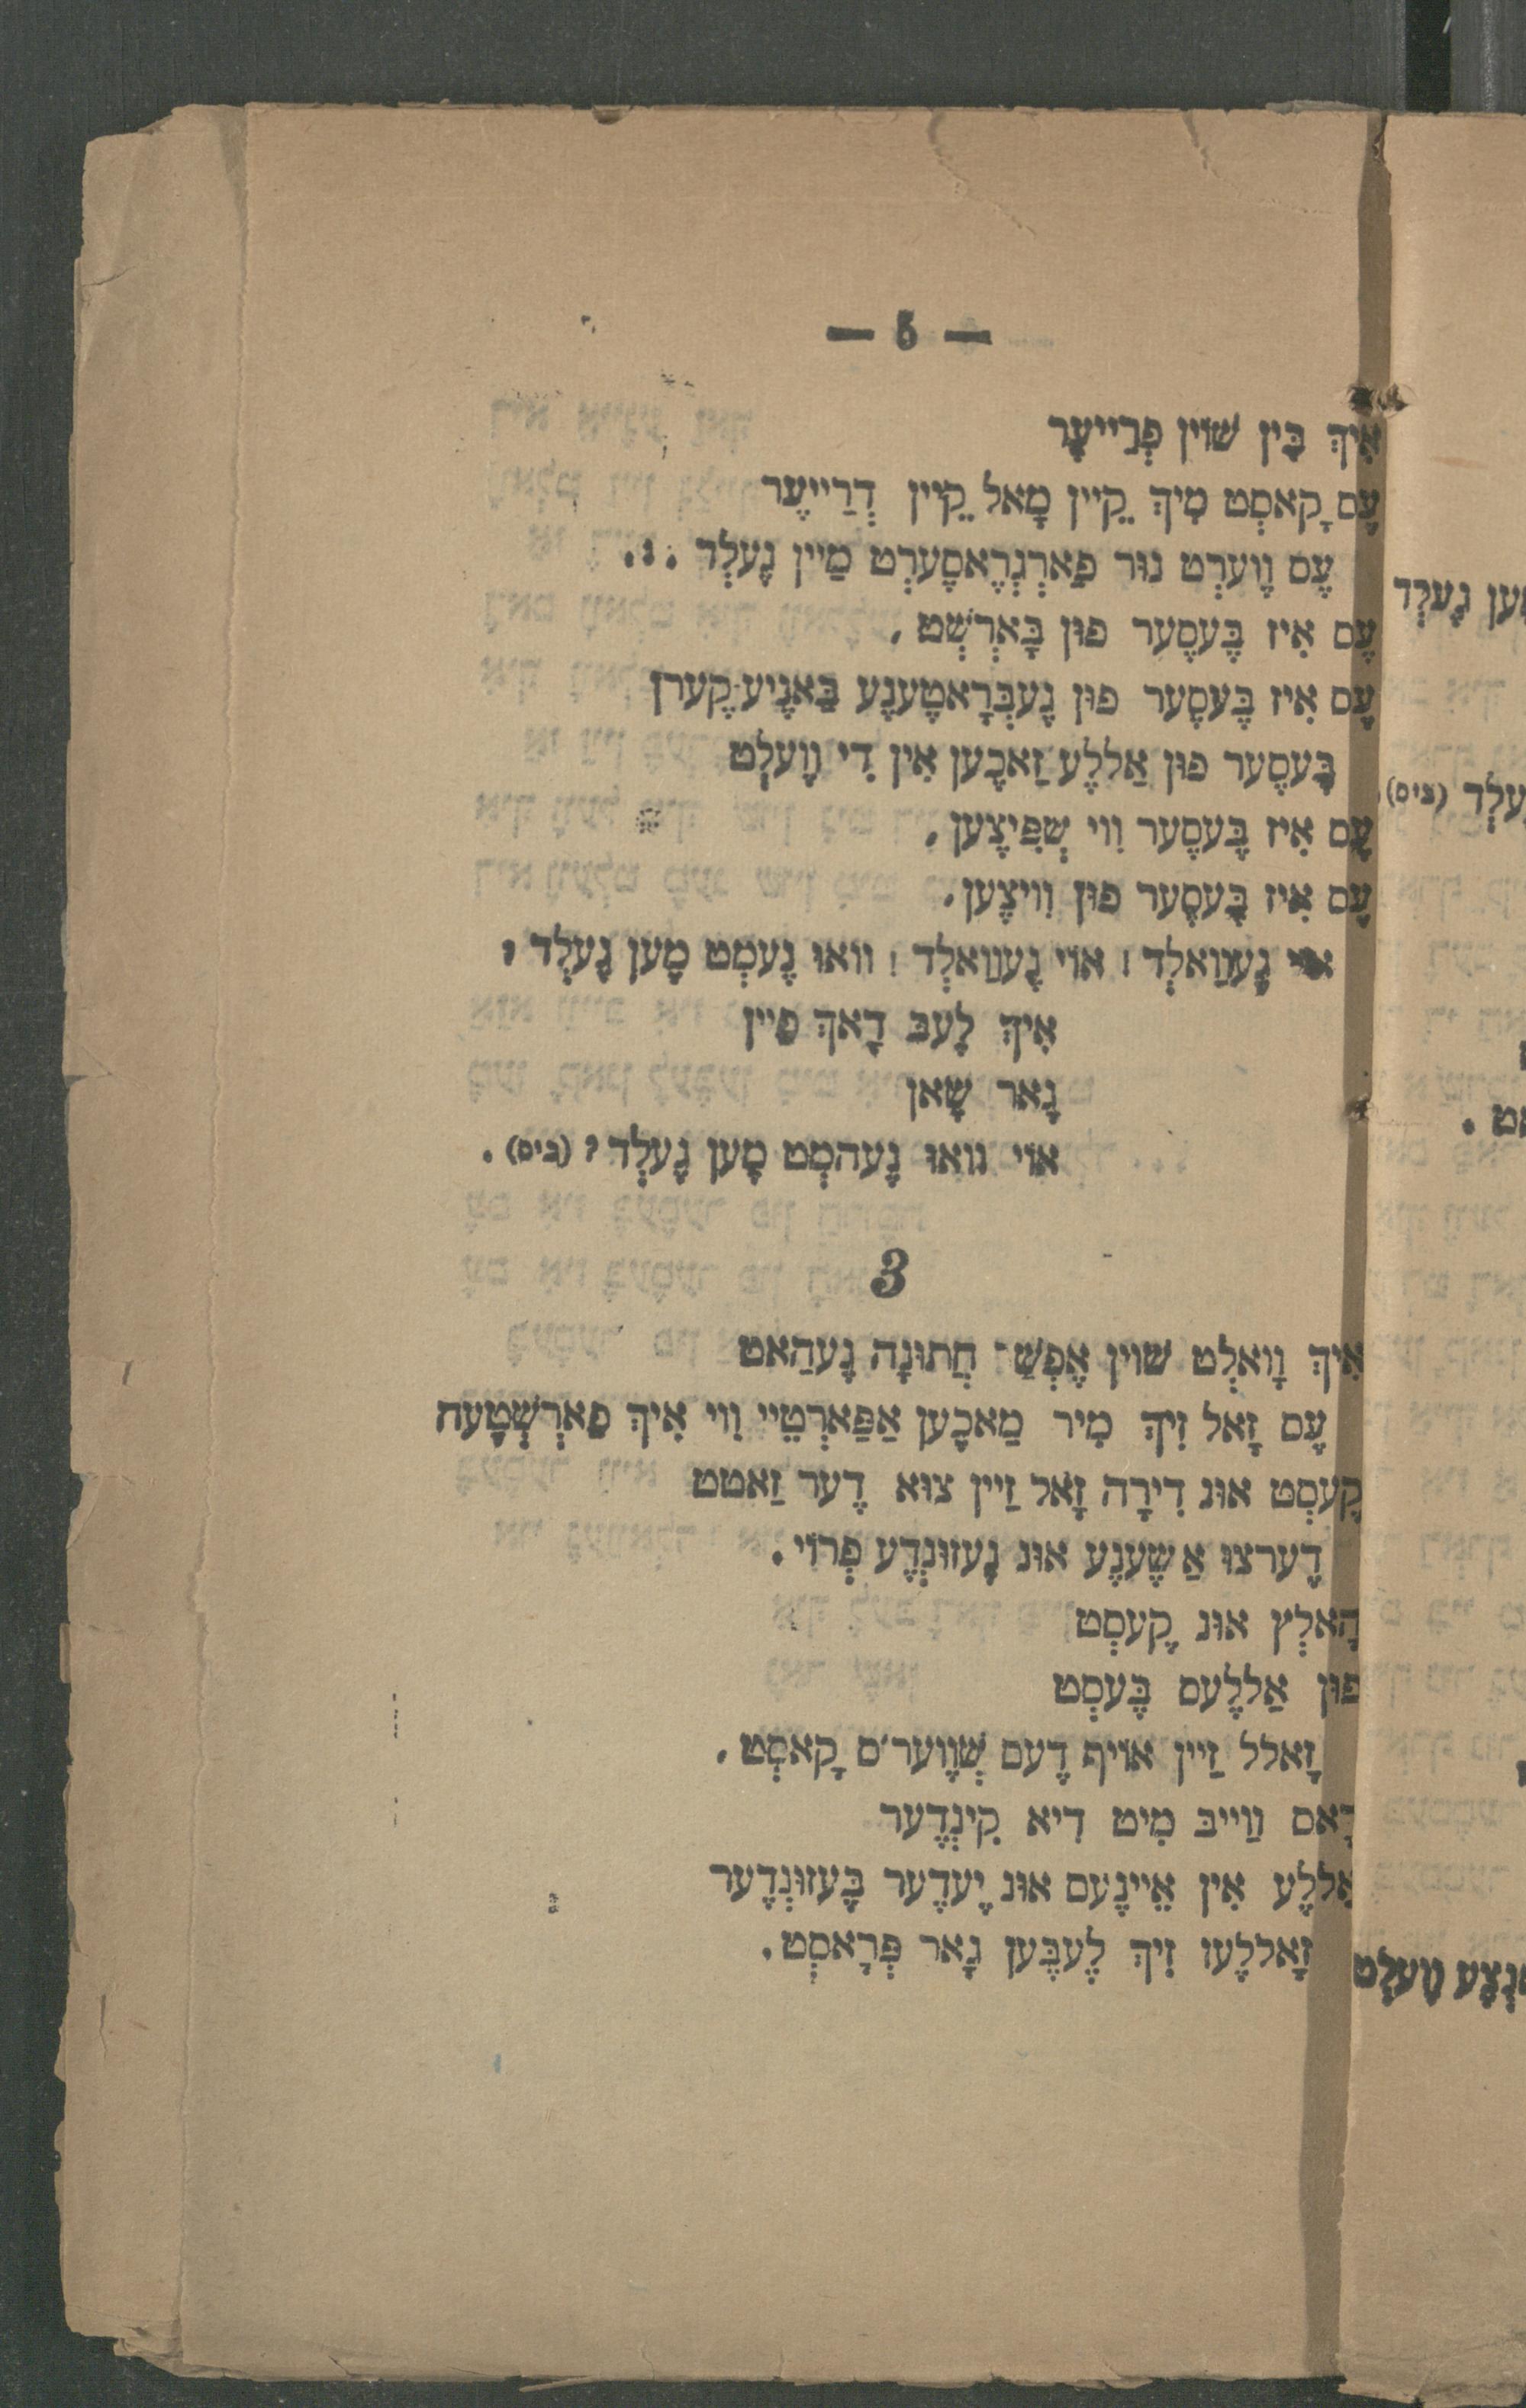 — 5 —
אִיךְ בִּין שׁוֹין פְרַייעֶר
עֶס קָאסְט מִיךְ קֵיין מָאל קֵיין דְרַייעֶר
עֶס וֶוערְט נור פַארְגְרֶאסֶערְט מַיין גֶעלְד . . .
עֶס אִיז בֶּעסֶער פוּן בָּארְשְׁט ,
עֶס אִיז בֶּעסֶער פוּן גֶעבְּרָאטֶענֶע בַּאנֶיע־קֶערן
בֶּעסֶער פוּן אַללֶע זַאכֶען אִין דִי וֶועלְט
עֶס אִיז בֶּעסֶער וִוי שְׁפִּיצֶען ,
עֶס אִיז בֶּעסֶער פוּן וִויצֶען ,
אוי גֶעוַואלְד ! אוי גֶעוַואלְד ! וואוּ נֶעמְט מֶען גֶעלְד ?
אִיךְ לֶעבּ דָאךְ פיין
גָאר שָׁאן
אוֹי וואוּ נֶעהמְט מֶען גֶעלְד ? (ביס) .
3
אִיךְ וָואלְט שׁוֹין אֶפְשַׁר חֲתוּנָה גֶעהַאט
עֶס זָאל זִיךְ מִיר מַאכֶען אַפַּארְטֵיי וִוי אִיךְ פַארְשְׁטֶעה
קֶעסְט אוּנ דִירָה זָאל זַיין צוּא דֶער זַאטט
דֶערצוּ אַ שֶׁענֶע אוּנ גֶעזוּנְדֶע פְרוֹי .
הָאלְץ אוּנ קֶעסְט
פוּן אַללֶעס בֶּעסְט
זָאלל זַיין אוֹיף דֶעם שְׁוֶוער׳ס קָאסְט ,
דָאס וַוייבּ מִיט דִיא קִינְדֶער
אַללֶע אִין אֵיינֶעם אוּנ יֶעדֶער בֶּעזוּנְדֶער
זָאללֶען זִיךְ לֶעבֶּען גָאר פְּרָאסְט .
גֶעלְד
(ביס)
וֶועלְט